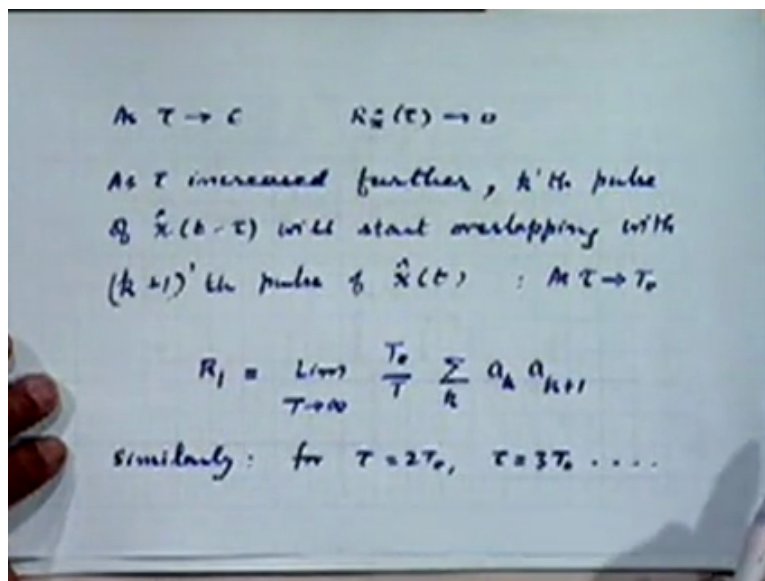 As τ → ε R_x̂(τ) → 0
As τ increased further, k'th pulse
of x̂(t-τ) will start overlapping with
(k+1)'th pulse of x̂(t) : As τ → T₀
R₁ = Lim T→∞ T₀/T Σ_k a_k a_{k+1}
Similarly: for τ = 2T₀, τ = 3T₀ ....